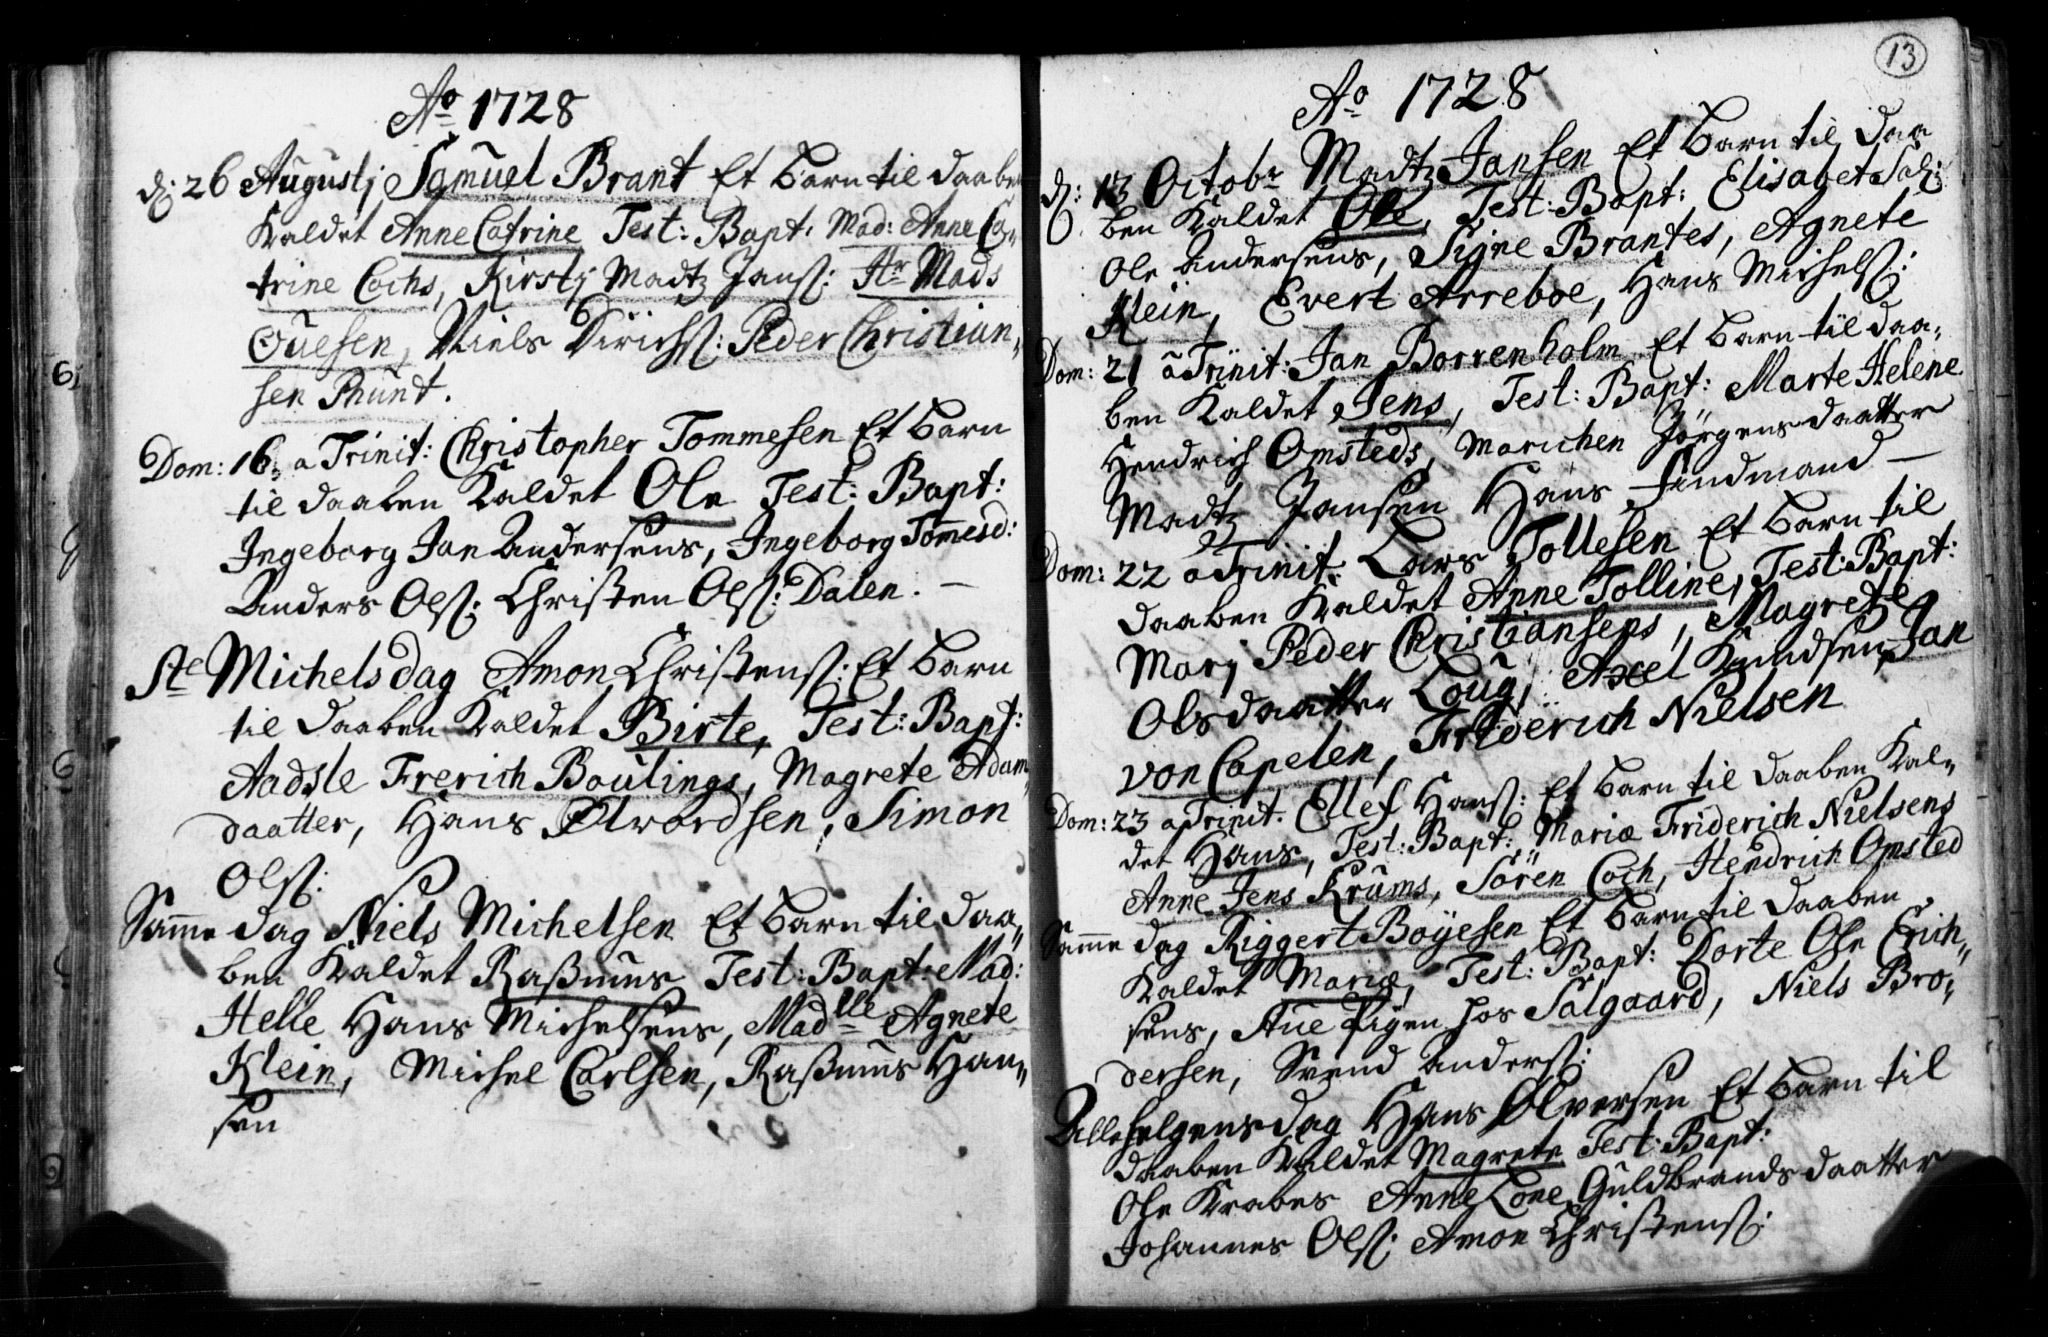 Ao 1728
d: 26 Augustj Samuel Brant Et Barn til daaben
Kaldet Anne Catrine Test: Bapt: Mad: Anne Ca-
trine Cochs, Kirstj Madtz Janss: Hr Mads
Ouesen, Niels Dirichss: Peder Christian-
sen Phunt.
Dom: 16 a Trinit: Christopher Tommesen Et Barn
til daaben Kaldet Ole Test: Bapt:
Ingeborg Jan Andersens, Ingeborg Tommesd:
Anders Olss: Christen Olss: Dalen. —
Ste Michels dag Amon Christenss: Et Barn
til daaben Kaldet Birte, Test: Bapt:
Aadsle Frerich Boulings, Magrete Adams
daatter, Hans Ølvordsen, Simon
Olss:
Samme dag Niels Michelsen Et Barn til daa-
ben Kaldet Rasmus Test: Bapt: Mad:
Helle Hans Michelsens, Madlle Agnete
Klein, Michel Carlsen, Rasmus Han-
sen
13
Ao 1728
d: 13 Octobr Madtz Jansen Et Barn til daa
ben Kaldet Ole, Test: Bapt: Elisabet Sal:
Ole Andersens, Sijne Brantes, Agnete
Klein, Evert Arreboe, Hans Michelss:
Dom: 21 a Trinit: Jan Borrenholm Et Barn til daa-
ben Kaldet Jens, Test: Bapt: Marte Helene
Hendrich Omsteds, Marichen Jörgensdaatter
Madtz Jansen Hans Findmand —
Dom: 22 a Trinit: Lars Tollesen Et Barn til
daaben Kaldet Anne Tolline, Test: Bapt:
Marj Peder Christiansens, Magrete
Olsdaatter Loug, Axel Knudsen, Jan
von Capelen, Friderich Nielsen
Dom: 23 a Trinit. Ellef Hanss: Et Barn til daaben Kal-
det Hans, Test: Bapt: Mariæ Friderich Nielsens
Anne Jens Krums, Sören Coch, Hendrich Omsted
Samme dag Riggert Boyesen Et Barn til daaben
Kaldet Mariæ, Test: Bapt: Dorte Ole Erich-
sens, Aue Pigen hos Salgaard, Niels Bro-
dersen, Svend Anderss:
Allehelgens dag Hans Ølversen Et Barn til
daaben Kaldet Magrete Test: Bapt:
Ole Krabes Anne Lone Guldbrandsdaatter
Johannes Olss: Amon Christenss: